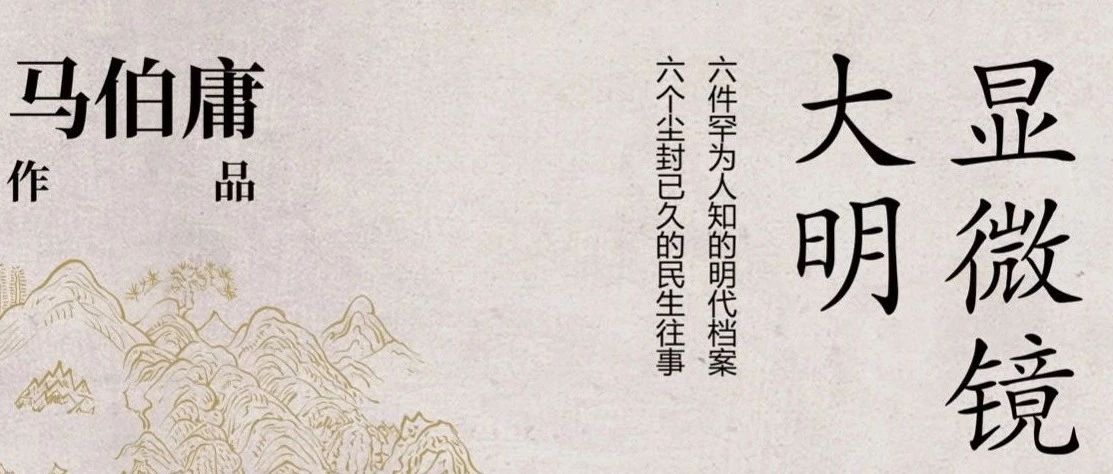 显微镜
大明
六件罕为人知的明代档案
六个尘封已久的民生往事
马伯庸
作品